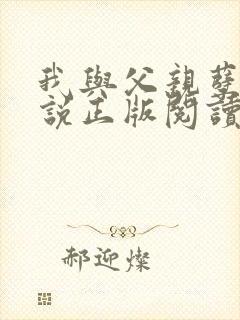 我與父親孽
說正版閱讀
郝迎燦